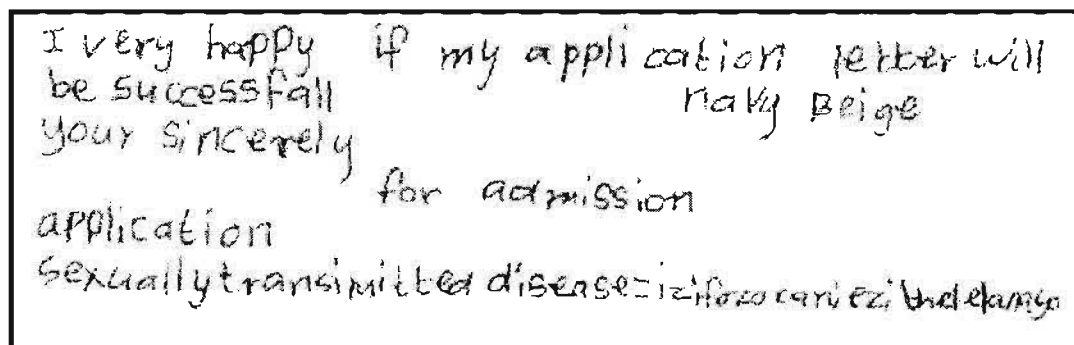 I very happy if my application letter will
be successfall navy Beige
your sincerely
for admission
application
sexually transimitted disease=izifozo